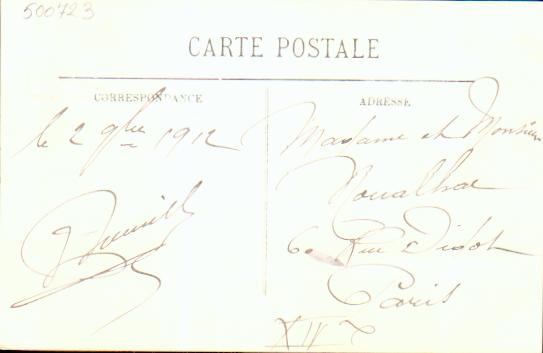 500723
CARTE POSTALE
CORRESPONDANCE
ADRESSE
le 2 9bre 1912
Madame et Monsieur
Noualhac
60 Rue Didot
Paris
XIVe